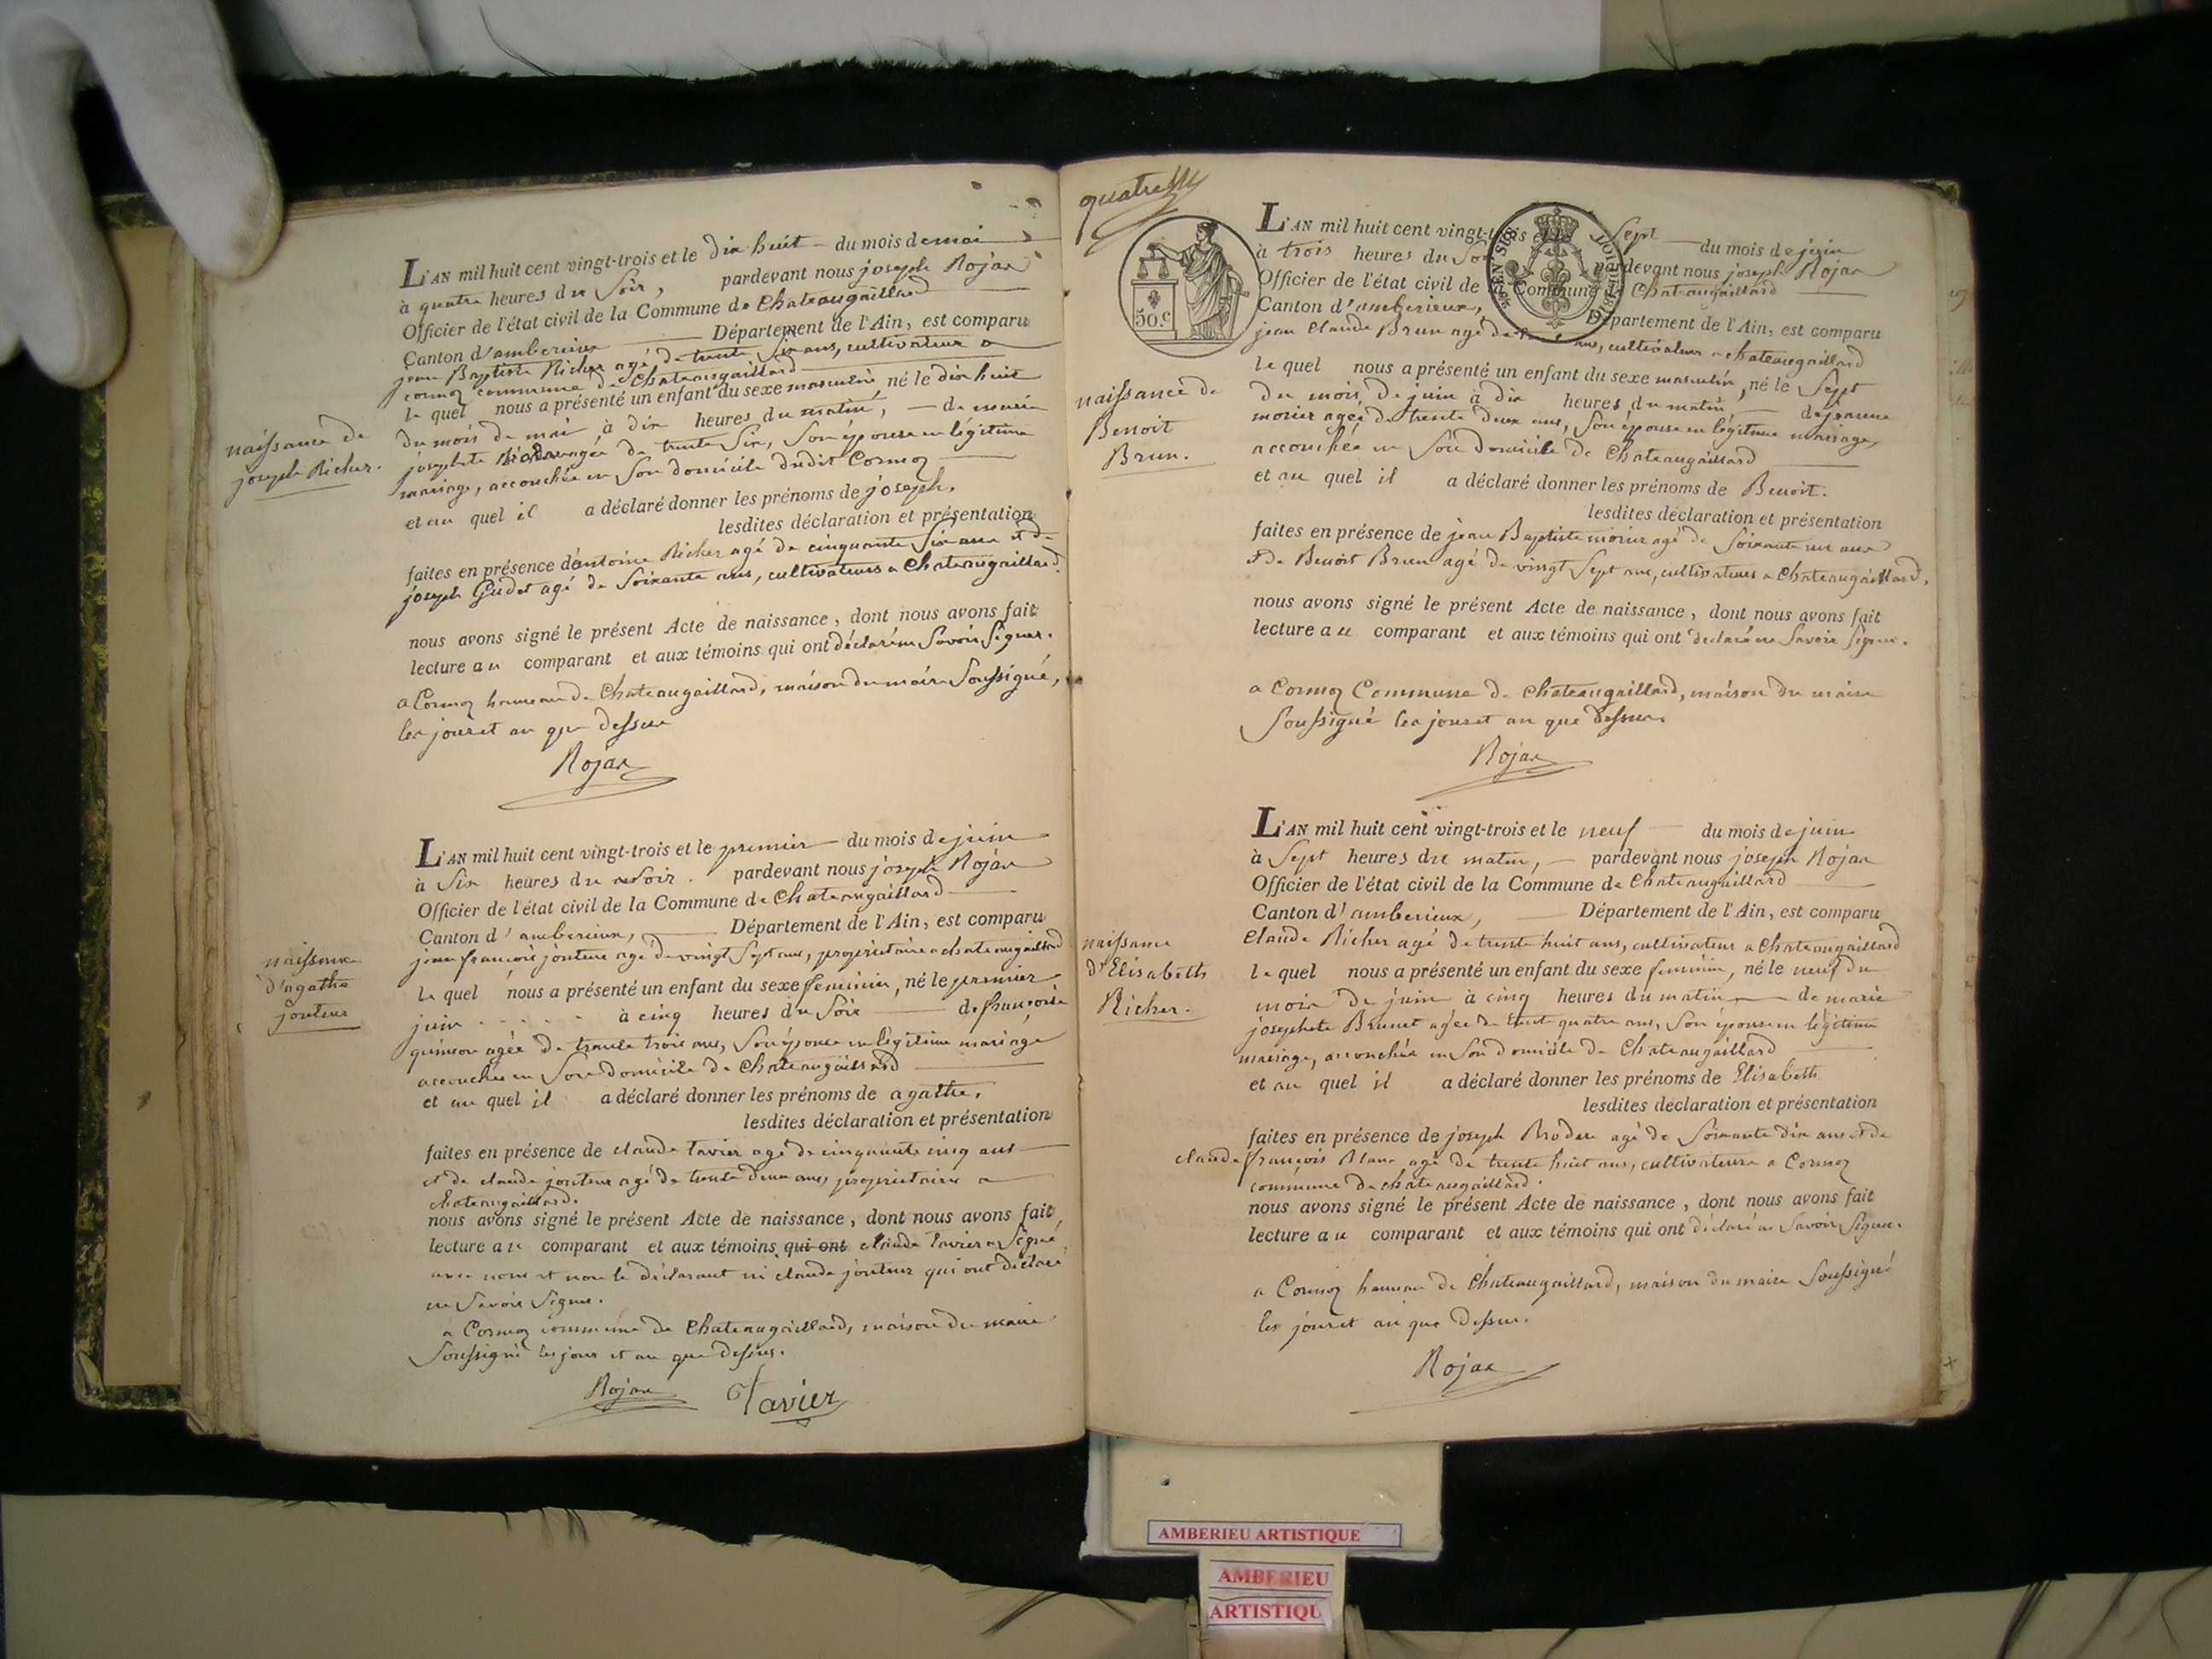 L'AN mil huit cent vingt-trois et le dix huit — du mois de mai
à quatre heures du soir, pardevant nous joseph Rojax
Officier de l'état civil de la Commune de Chateaugaillard
Canton d'amberieux — Département de l'Ain, est comparu
jean Baptiste Richer agé de trente six ans, cultivateur a
cormoz commune de Chateaugaillard
le quel nous a présenté un enfant du sexe masculin né le dix huit
du mois de mai à dix heures du matin, — de marie
josephete agée de trente six, son épouse en légitime
mariage, accouchée en son domicile dudit Cormoz
et au quel il a déclaré donner les prénoms de joseph.
lesdites déclaration et présentation
faites en présence d'antoine Richer agé de cinquante six ans et de
joseph Gudet agé de soixante ans, cultivateurs a Chateaugaillard.
nous avons signé le présent Acte de naissance, dont nous avons fait
lecture au comparant et aux témoins qui ont déclaré ne savoir signer.
a Cormoz hameau de Chateaugaillard, maison du maire soussigné,
les jour et an que dessus
Rojax
naissance de
joseph Richer.
L'AN mil huit cent vingt-trois et le premier — du mois de juin
à six heures du soir. pardevant nous joseph Rojax
Officier de l'état civil de la Commune de Chateaugaillard
Canton d'amberieux, — Département de l'Ain, est comparu
jean françois jouteur agé de vingt sept ans, proprietaire a chateaugaillard
le quel nous a présenté un enfant du sexe feminin, né le premier
juin à cinq heures du soir — de françoise
quinson agée de trente trois ans, son épouse en légitime mariage
accouchée en son domicile de Chateaugaillard
et au quel il a déclaré donner les prénoms de agathe.
lesdites déclaration et présentation
faites en présence de claude Tavier agé de cinquante cinq ans
et de claude jouteur agé de trente deux ans, proprietaires a
chateaugaillard.
nous avons signé le présent Acte de naissance, dont nous avons fait
lecture au comparant et aux témoins qui ont claude Tavier a signé
avec nous et non le déclarant ni claude jouteur qui ont déclaré
ne savoir signer.
a Cormoz commune de Chateaugaillard, maison du maire
soussigné les jour et an que dessus.
Rojax Tavier
naissance
d'agathe
jouteur
quatre
50.c
L'AN mil huit cent vingt-trois et le sept — du mois de juin
à trois heures du soir pardevant nous joseph Rojax
Officier de l'état civil de la Commune de Chateaugaillard
Canton d'amberieux, Département de l'Ain, est comparu
jean claude Brun agé de ans, cultivateur a chateaugaillard
le quel nous a présenté un enfant du sexe masculin, né le sept
du mois de juin à dix heures du matin, — de jeanne
morier agée de trente deux ans, son épouse en légitime mariage,
accouchée en son domicile de Chateaugaillard
et au quel il a déclaré donner les prénoms de Benoit.
lesdites déclaration et présentation
faites en présence de jean Baptiste morier agé de soixante un ans
et de Benoit Brun agé de vingt sept ans, cultivateurs a Chateaugaillard,
nous avons signé le présent Acte de naissance, dont nous avons fait
lecture au comparant et aux témoins qui ont declaré ne savoir signer.
a Cormoz Commune de Chateaugaillard, maison du maire
soussigné les jour et an que dessus.
Rojax
naissance de
Benoit
Brun.
L'AN mil huit cent vingt-trois et le neuf — du mois de juin
à sept heures du matin, — pardevant nous joseph Rojax
Officier de l'état civil de la Commune de Chateaugaillard
Canton d'amberieux, — Département de l'Ain, est comparu
Claude Richer agé de trente huit ans, cultivateur a Chateaugaillard
le quel nous a présenté un enfant du sexe feminin, né le neuf du
mois de juin à cinq heures du matin — de marie
josephete Brunet agée de trente quatre ans, son épouse en légitime
mariage, accouchée en son domicile de Chateaugaillard
et au quel il a déclaré donner les prénoms de Elisabeth
lesdites déclaration et présentation
faites en présence de joseph Brodere agé de soixante dix ans et de
claude françois Blanc agé de trente huit ans, cultivateurs a Cormoz
commune de chateaugaillard.
nous avons signé le présent Acte de naissance, dont nous avons fait
lecture au comparant et aux témoins qui ont déclaré ne savoir signer.
a Cormoz hameau de Chateaugaillard, maison du maire soussigné
les jour et an que dessus.
Rojax
naissance
d'Elisabeth
Richer.
AMBERIEU ARTISTIQUE
AMBERIEU
ARTISTIQU